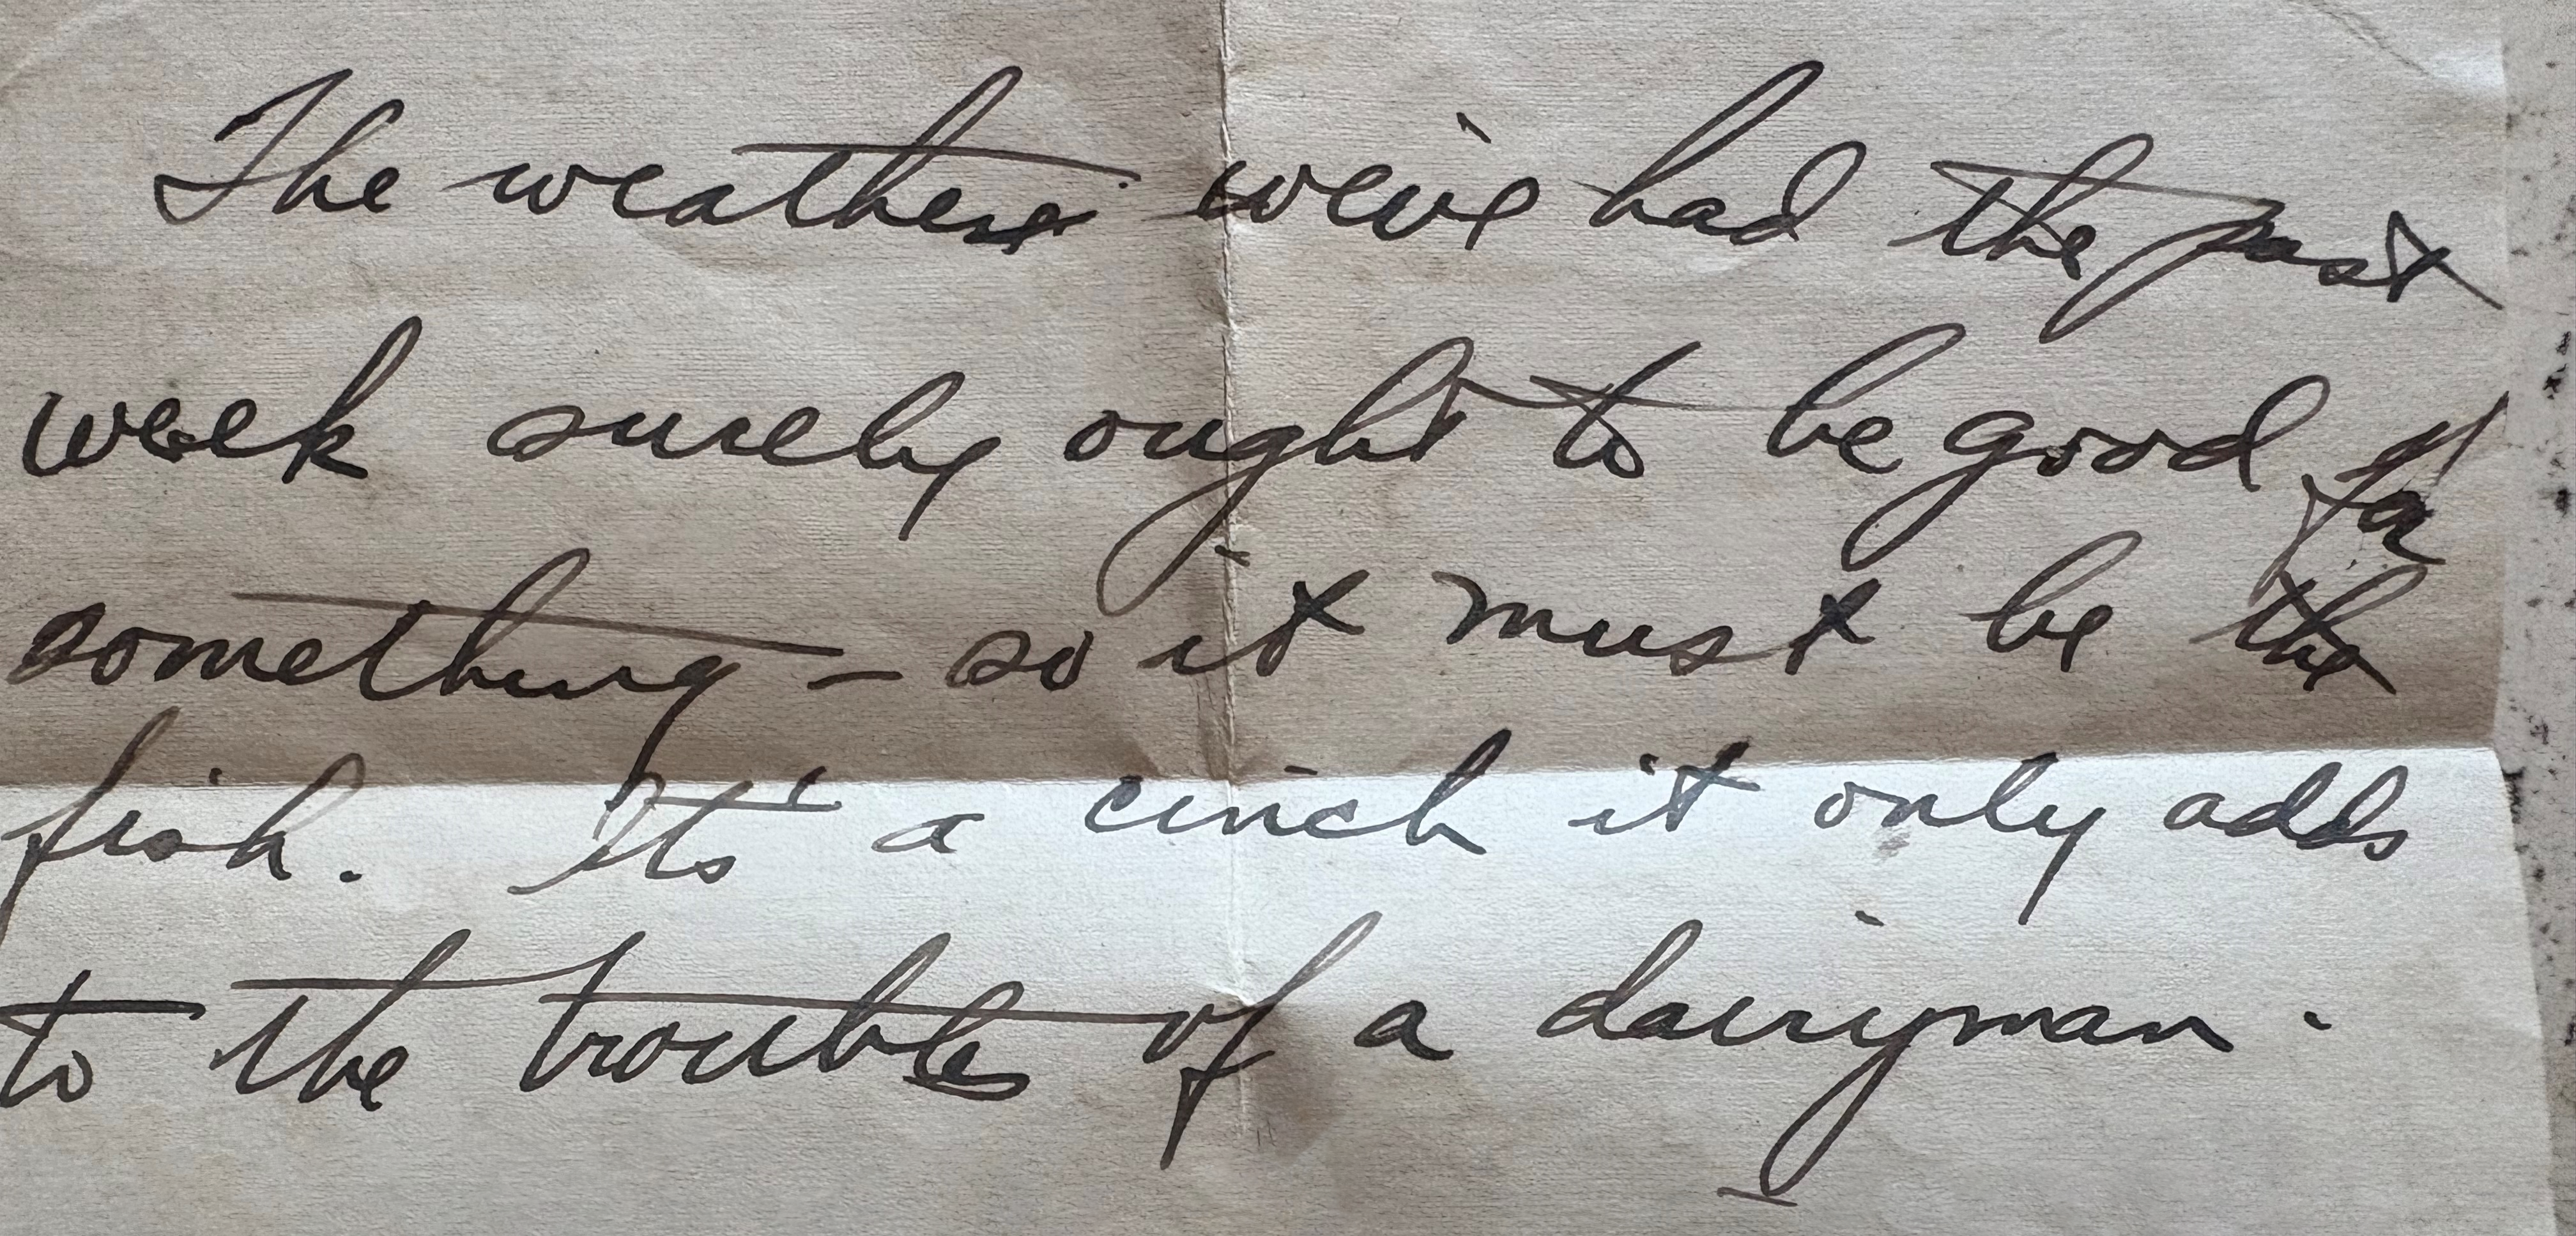 The weather we've had the past
week surely ought to be good for
something - so it must be the
fish. It's a cinch it only adds
to the troubles of a dairyman.